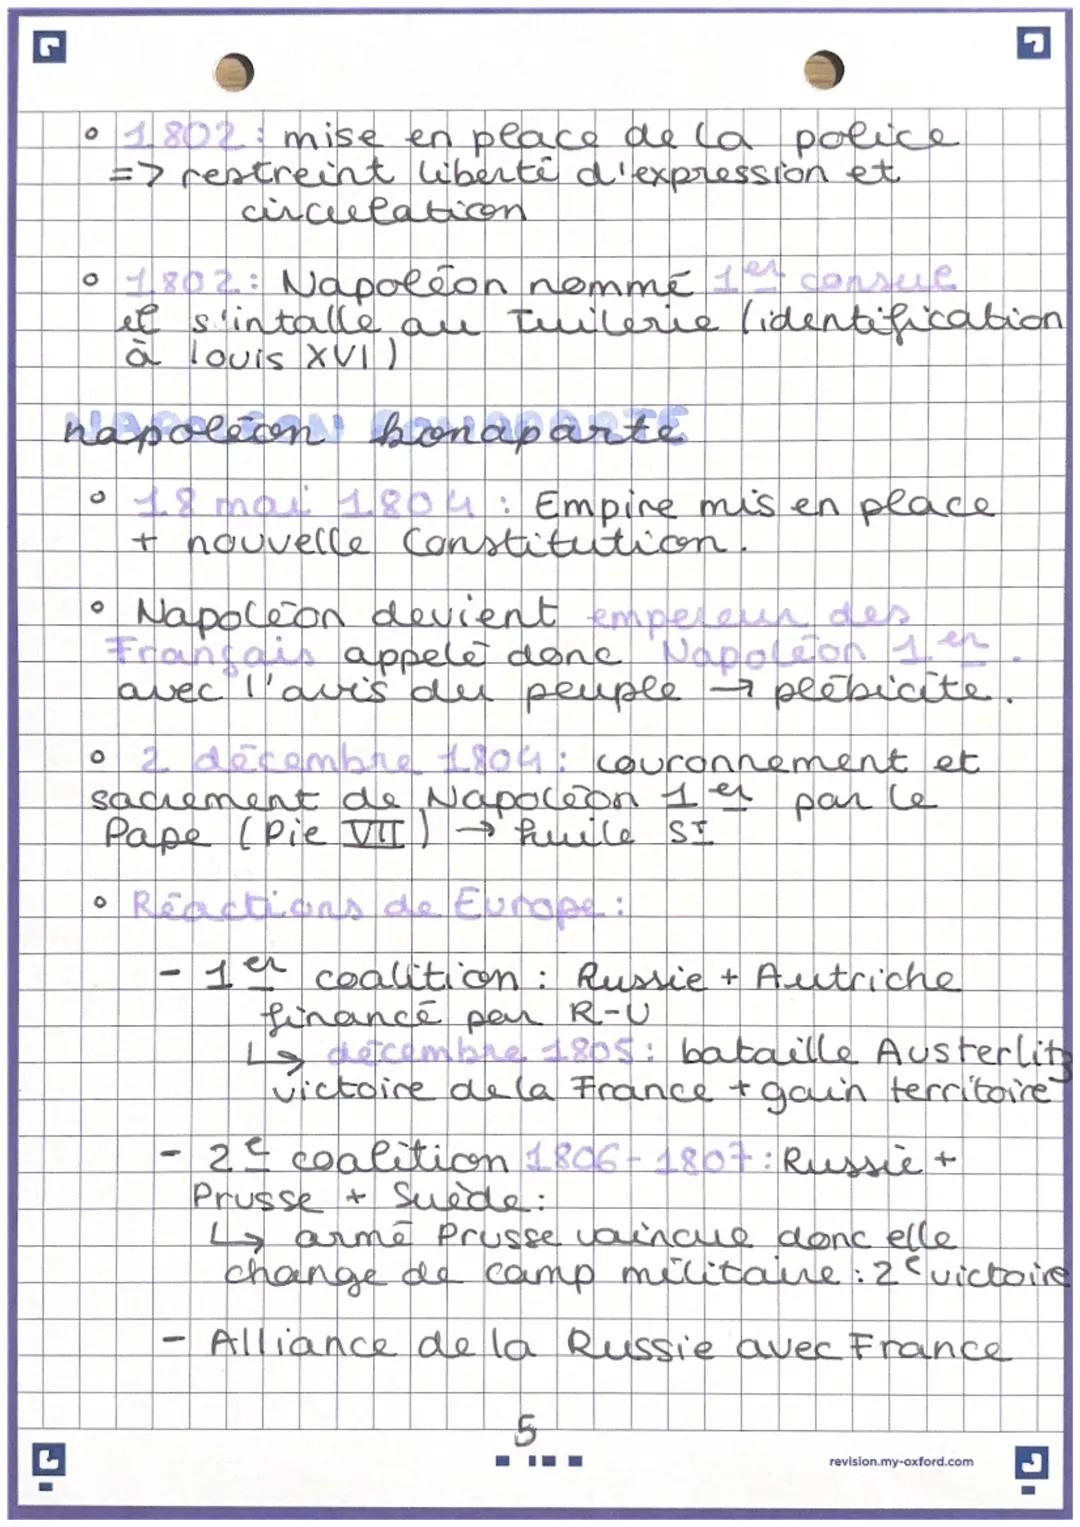 1802 : mise en place de la police
=> restreint liberté d'expression et
circulation
1802 : Napoléon nommé 1er consul
et s'intalle au Tuilerie (identification
à louis XVI)
napoléon bonaparte
18 mai 1804 : Empire mis en place
+ nouvelle Constitution.
Napoléon devient empereur des
Français appelé donc Napoléon 1er.
avec l'avis du peuple → plébicite.
2 décembre 1804 : couronnement et
sacrement de Napoléon 1er par le
Pape (Pie VII) → huile St
Réactions de Europe :
- 1er coalition : Russie + Autriche
financé par R-U
↳ décembre 1805 : bataille Austerlitz
victoire de la France + gain territoire
- 2e coalition 1806-1807 : Russie +
Prusse + Suède :
↳ armé Prusse vaincue donc elle
change de camp militaire : 2e victoire
- Alliance de la Russie avec France
5
revision.my-oxford.com